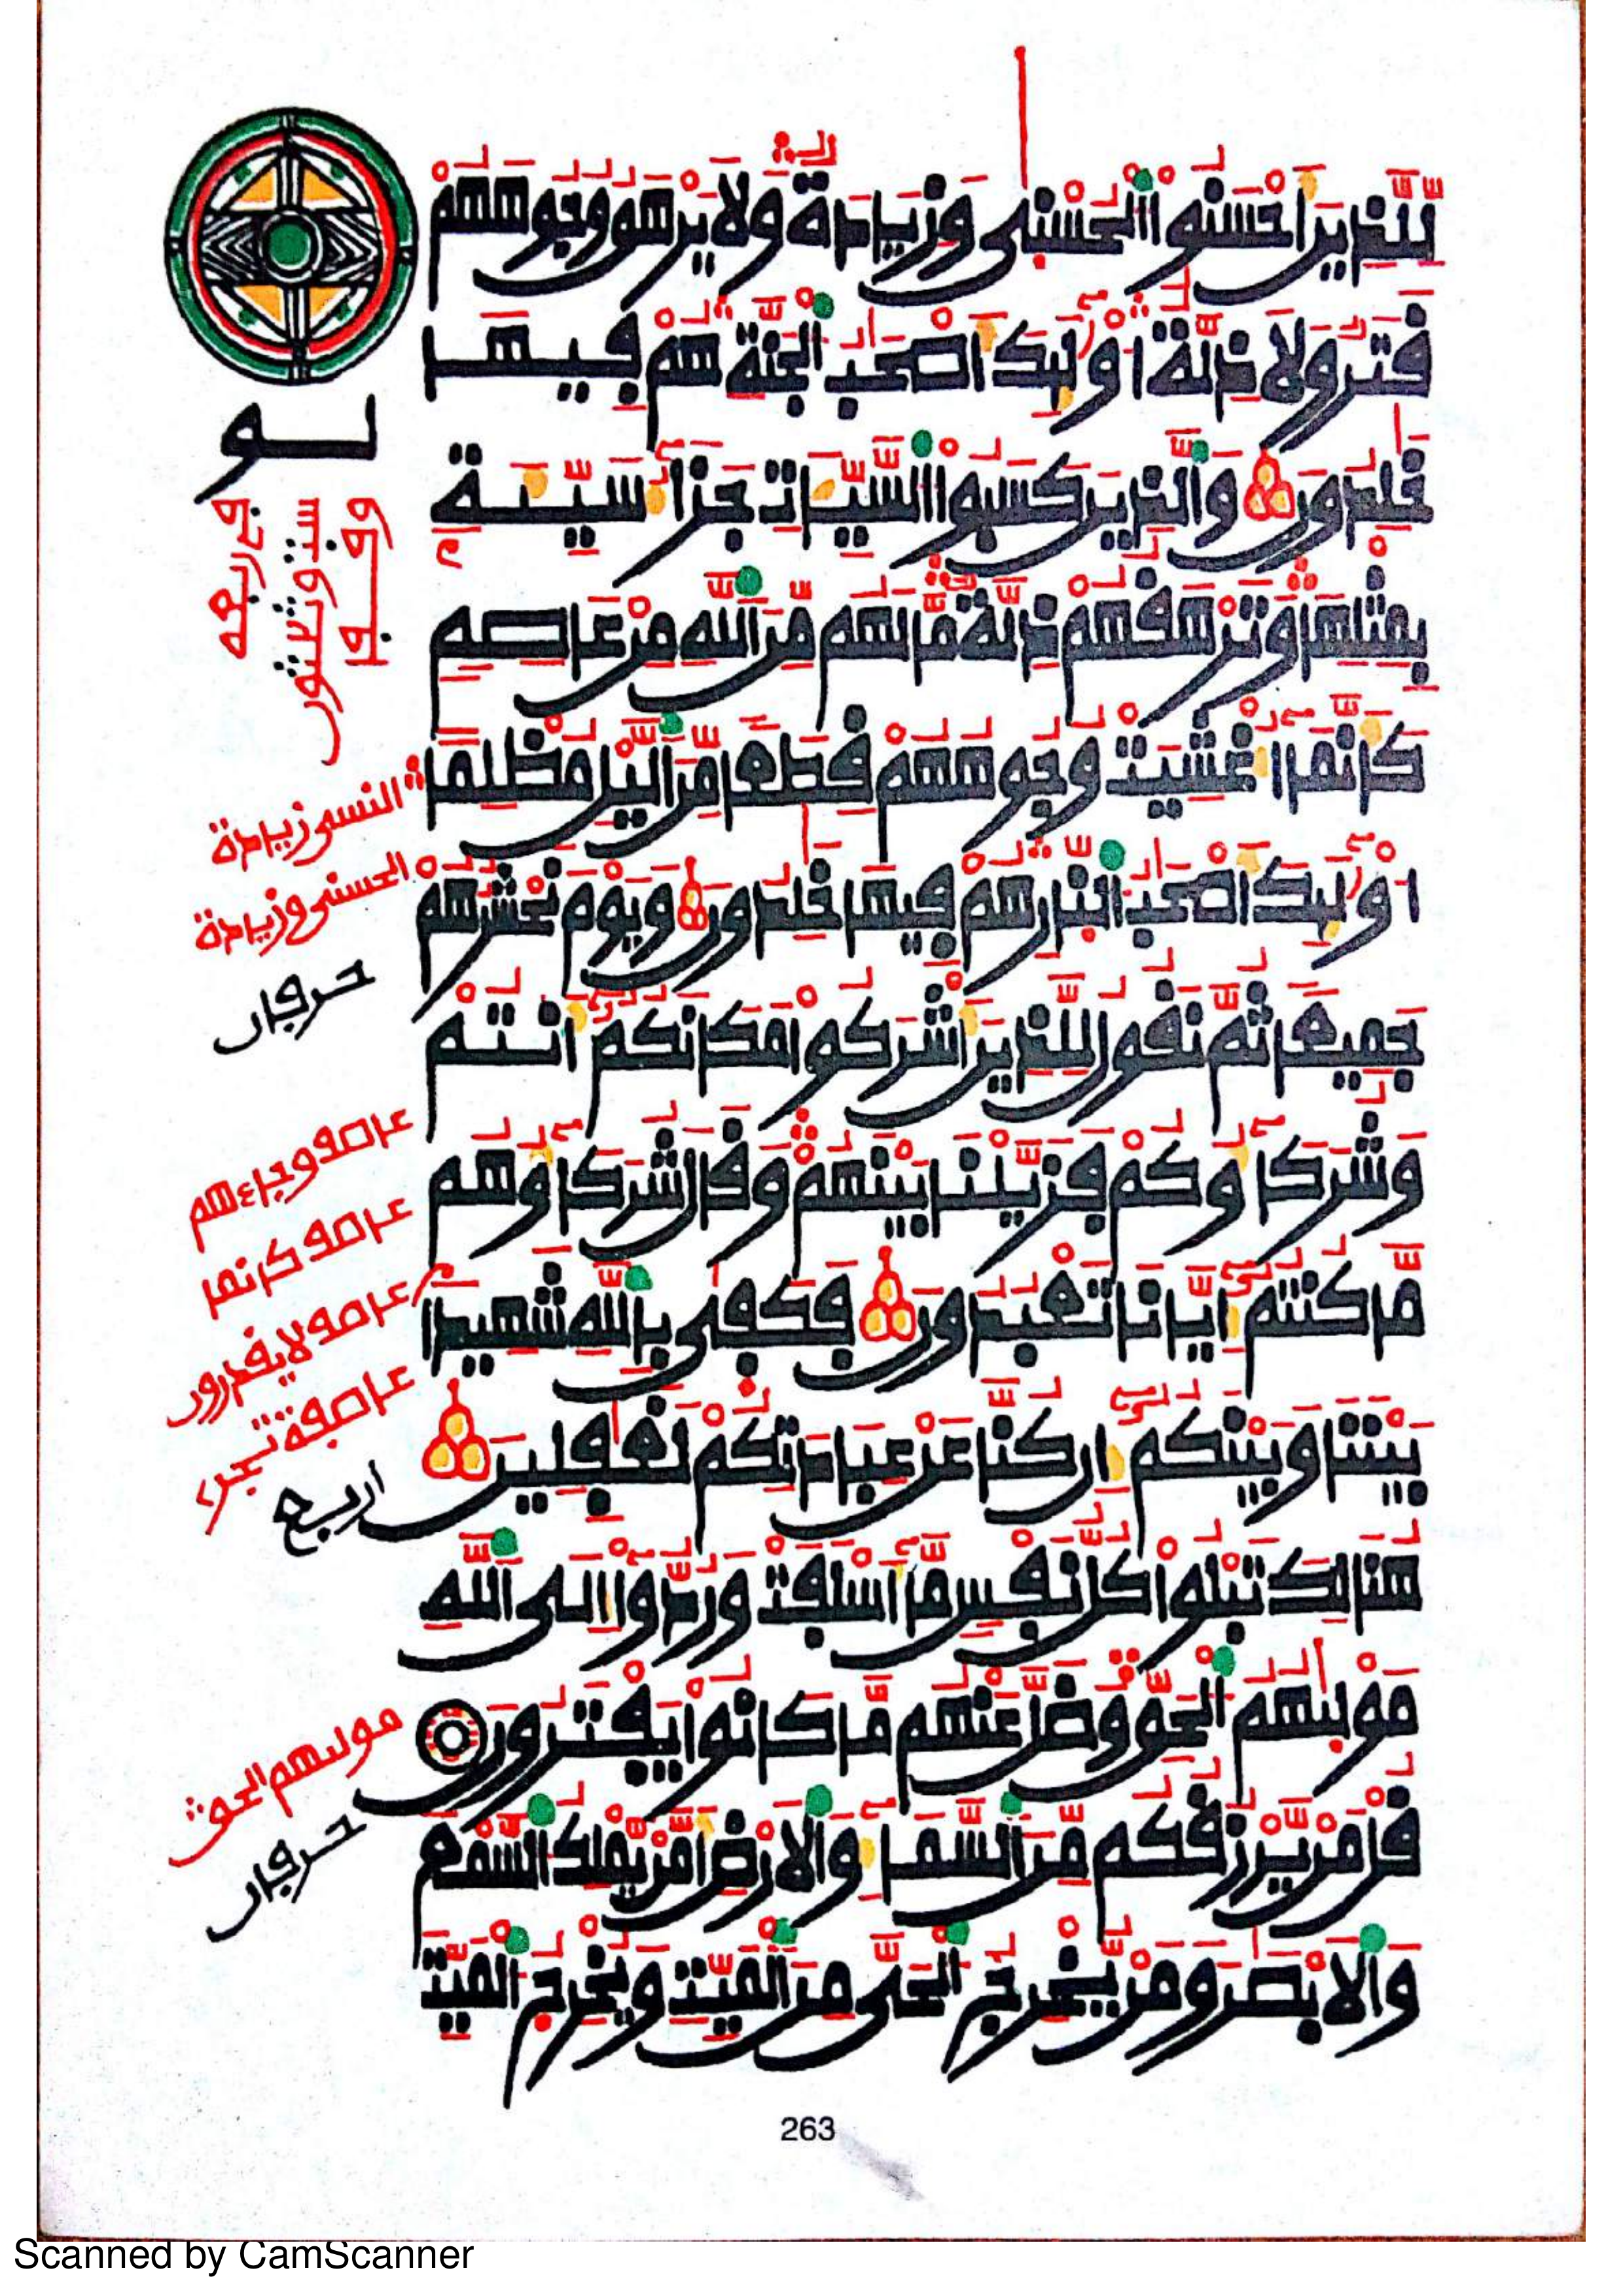 لِّلَّذِينَ أَحْسَنُوا۟ اُ۬لْحُسْنۭيٰ وَزِيَادَةٌ وَلَا يَرْهَقُ وُجُوهَهُمْ
قَتَرٌ وَلَا ذِلَّةٌ ا۟وْلَٰٓئِكَ أَصْحَٰبُ اُ۬لْجَنَّةِ هُمْ فِيهَا
خَٰلِدُونَ وَالَّذِينَ كَسَبُوا۟ اُ۬لسَّيِّـَٔاتِ جَزَآءُ سَيِّئَةِۢ
بِمِثْلِهَا وَتَرْهَقُهُمْ ذِلَّةٌ مَّا لَهُم مِّنَ اَ۬للَّهِ مِنْ عَاصِمٍ
كَأَنَّمَآ أُغْشِيَتْ وُجُوهُهُمْ قِطَعًا مِّنَ اَ۬ليْلِ مُظْلِمًا
ا۟وْلَٰٓئِكَ أَصْحَٰبُ اُ۬لنّ۪ارِ هُمْ فِيهَا خَٰلِدُونَ وَيَوْمَ نَحْشُرُهُمْ
جَمِيعًا ثُمَّ نَقُولُ لِلَّذِينَ أَشْرَكُوا۟ مَكَانَكُمُۥٓ أَنتُمْ
وَشُرَكَآؤُكُمْ فَزَيَّلْنَا بَيْنَهُمْ وَقَالَ شُرَكَآؤُهُم
مَّا كُنتُمُۥٓ إِيَّانَا تَعْبُدُونَ فَكَف۪يٰ بِاللَّهِ شَهِيدًۢا
بَيْنَنَا وَبَيْنَكُمُۥٓ إِن كُنَّا عَنْ عِبَادَتِكُمْ لَغَٰفِلِينَ
هُنَالِكَ تَبْلُوا۟ كُلُّ نَفْسٍ مَّآ أَسْلَفَتْ وَرُدُّوٓا۟ إِلَى اَ۬للَّهِ
مَوْل۪يٰهُمُ اُ۬لْحَقِّ وَضَلَّ عَنْهُم مَّا كَانُوا۟ يَفْتَرُونَ
قُلْ مَنْ يَّرْزُقُكُم مِّنَ اَ۬لسَّمَآءِ وَالْأَرْضِ أَمَّنْ يَّمْلِكُ اُ۬لسَّمْعَ
وَالْأَبْصَٰرَ وَمَنْ يُّخْرِجُ اُ۬لْحَيَّ مِنَ اَ۬لْمَيِّتِ وَيُخْرِجُ اُ۬لْمَيِّتَ
لو
وقفا
ستة وثلاثون
في ربعه
النسى زيادة
الحسنى وزيادة
حرفان
مولىهم الحق
حرفان
263
Scanned by CamScanner